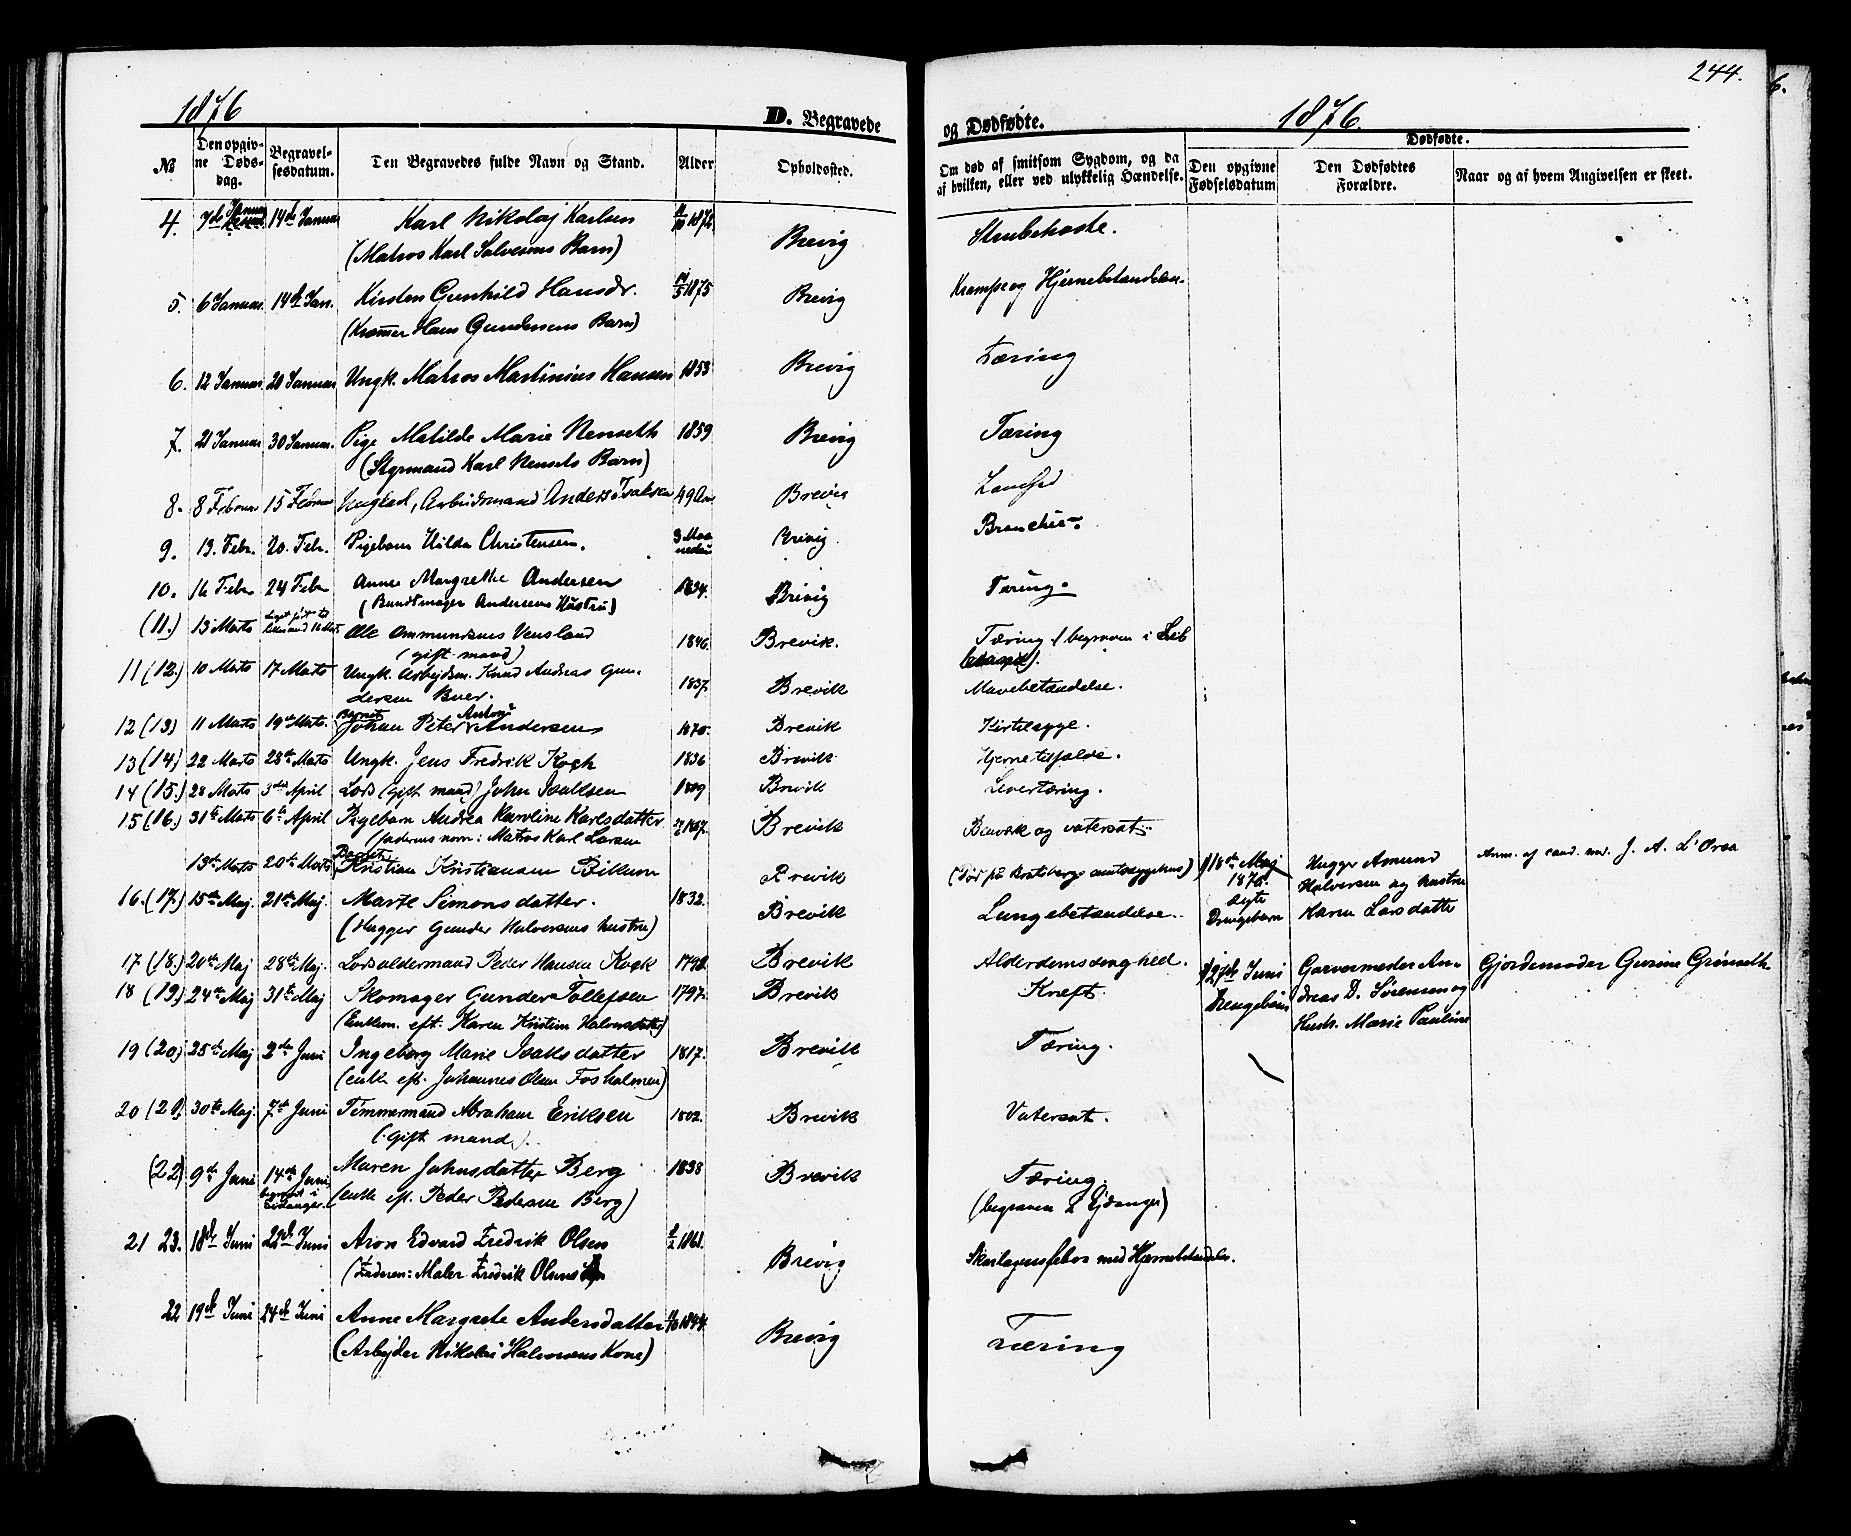 244.
1876
D. Begravede
og Dødfødte.
1876.
№
Den opgivne Dødsdag.
Begravelsesdatum.
Den Begravedes fulde Navn og Stand.
Alder
Opholdssted.
Om død af smitsom Sygdom, og da af hvilken, eller ved ulykkelig Hændelse.
Dødfødte.
Den opgivne Fødselsdatum
Den Dødfødtes Forældre.
Naar og af hvem Angivelsen er skeet.
4. 7de Januar 14de Januar Karl Nikolaj Karlsen Brevig Strubehoste.
(Matros Karl Salvesens Barn)
5. 6 Januar. 14de Jan. Kirsten Gunhild Hansdr. 14/5 1875 Brevig Krampe og Hjernebetændelse.
(Kræmmer Hans Gundersens Barn)
6. 12 Januar 20 Januar Ungk. Matros Martinius Hansen 1853 Brevig Tæring
7. 21 Januar 30 Januar. Pige Matilde Marie Nenseth 1859 Brevig Tæring
(Styrmand Karl Nensets Barn)
8. 8 Februar 15 Februar Ungkarl, Arbeidsmand Anders Isaksen 49 Aar Brevig
9. 13. Febr. 20. Febr. Pigebarn Hilda Christensen. 3 Maaneder Brevig Bronchit.
10. 16 Febr 24 Febr Anne Margrethe Andersen 1834. Brevig Tæring.
(Bundtmager Andersens Hustru)
(11.) 13 Marts Ole Ommundsens Vensland 1846. Brevik. Tæring (begraven i
(gift mand)
11 (12.) 10 Marts 17 Marts Ungk. Arbejdsm. Knud Andreas Gun- 1837. Brevik Mavebetændelse.
dersen Buer.
12 (13) 11 Marts 19de Marts. Barnet Johan Peter Anton Andersen 1870. Brevik Kirtelsyge.
13 (14) 22 Marts 28de Marts Ungk. Jens Fredrik Koch 1836 Brevik Hjernetilfælde.
14 (15.) 28 Marts 3die April Lods (gift mand) John Isaksen 1809 Brevik Levertæring.
15 (16.) 31te Marts 6te April Pigebarn Andrea Karoline Karlsdatter Brevik og vatersot.
(faderens navn: Matros Karl Larsen
13de Marts 20de Marts Barnet Kristian Kristiansen Brevik (Død på Bratsbergs amtssygehus)
16. (17.) 15de Maj. 21de Maj. Marte Simonsdatter. 1832. Brevik Lungebetændelse.
(Hugger Gunder Halvorsens hustru)
1) 18de Maj 1876. Drengebarn
Hugger Amund Halvorsen og hustru Karen Larsdatter
Anm. af cand. med. J. A. L'Orsa
17 (18.) 20de Maj 28de Maj. Lodsoldermand Peder Hansen Kock Brevik Alderdomssvaghed.
18 (19.) 24de Maj 31te Maj Skomager Gunder Tollefsen 1797. Brevik Kræft.
(Enkem. eft. Karen Kristine Halvorsdatter)
2) 27de Juni Drengebarn
Garvermester Andreas D. Sørensen og Hustr. Marie Pauline
Gjordemoder Gurine Grønseth
19 (20) 25de Maj 2den Juni Ingeborg Marie Isaksdatter 1817. Brevik Tæring.
(enke eft. Johannes Olsen Fosholmen)
20 (21) 30te Maj. 7de Juni Tømmermand Abraham Eriksen 1802. Brevik Vatersot.
(gift mand).
(22) 9de Juni 14de Juni Maren Johnsdatter Berg 1838 Brevik Tæring.
begravet i Eidanger. (enke eft. Peder Pedersen Berg) (begraven i Ejdanger)
21 23. 18de Juni 22de Juni Aron Edvard Fredrik Olsen Brevig Skarlagensfeber med Hjernebetændelse.
(Faderen: Maler Fredrik Olsen
22 19de Juni 24de Juni Anne Margrete Andersdatter 1844. Brevig Tæring
(Arbejder Nikolai Halvorsens Kone)